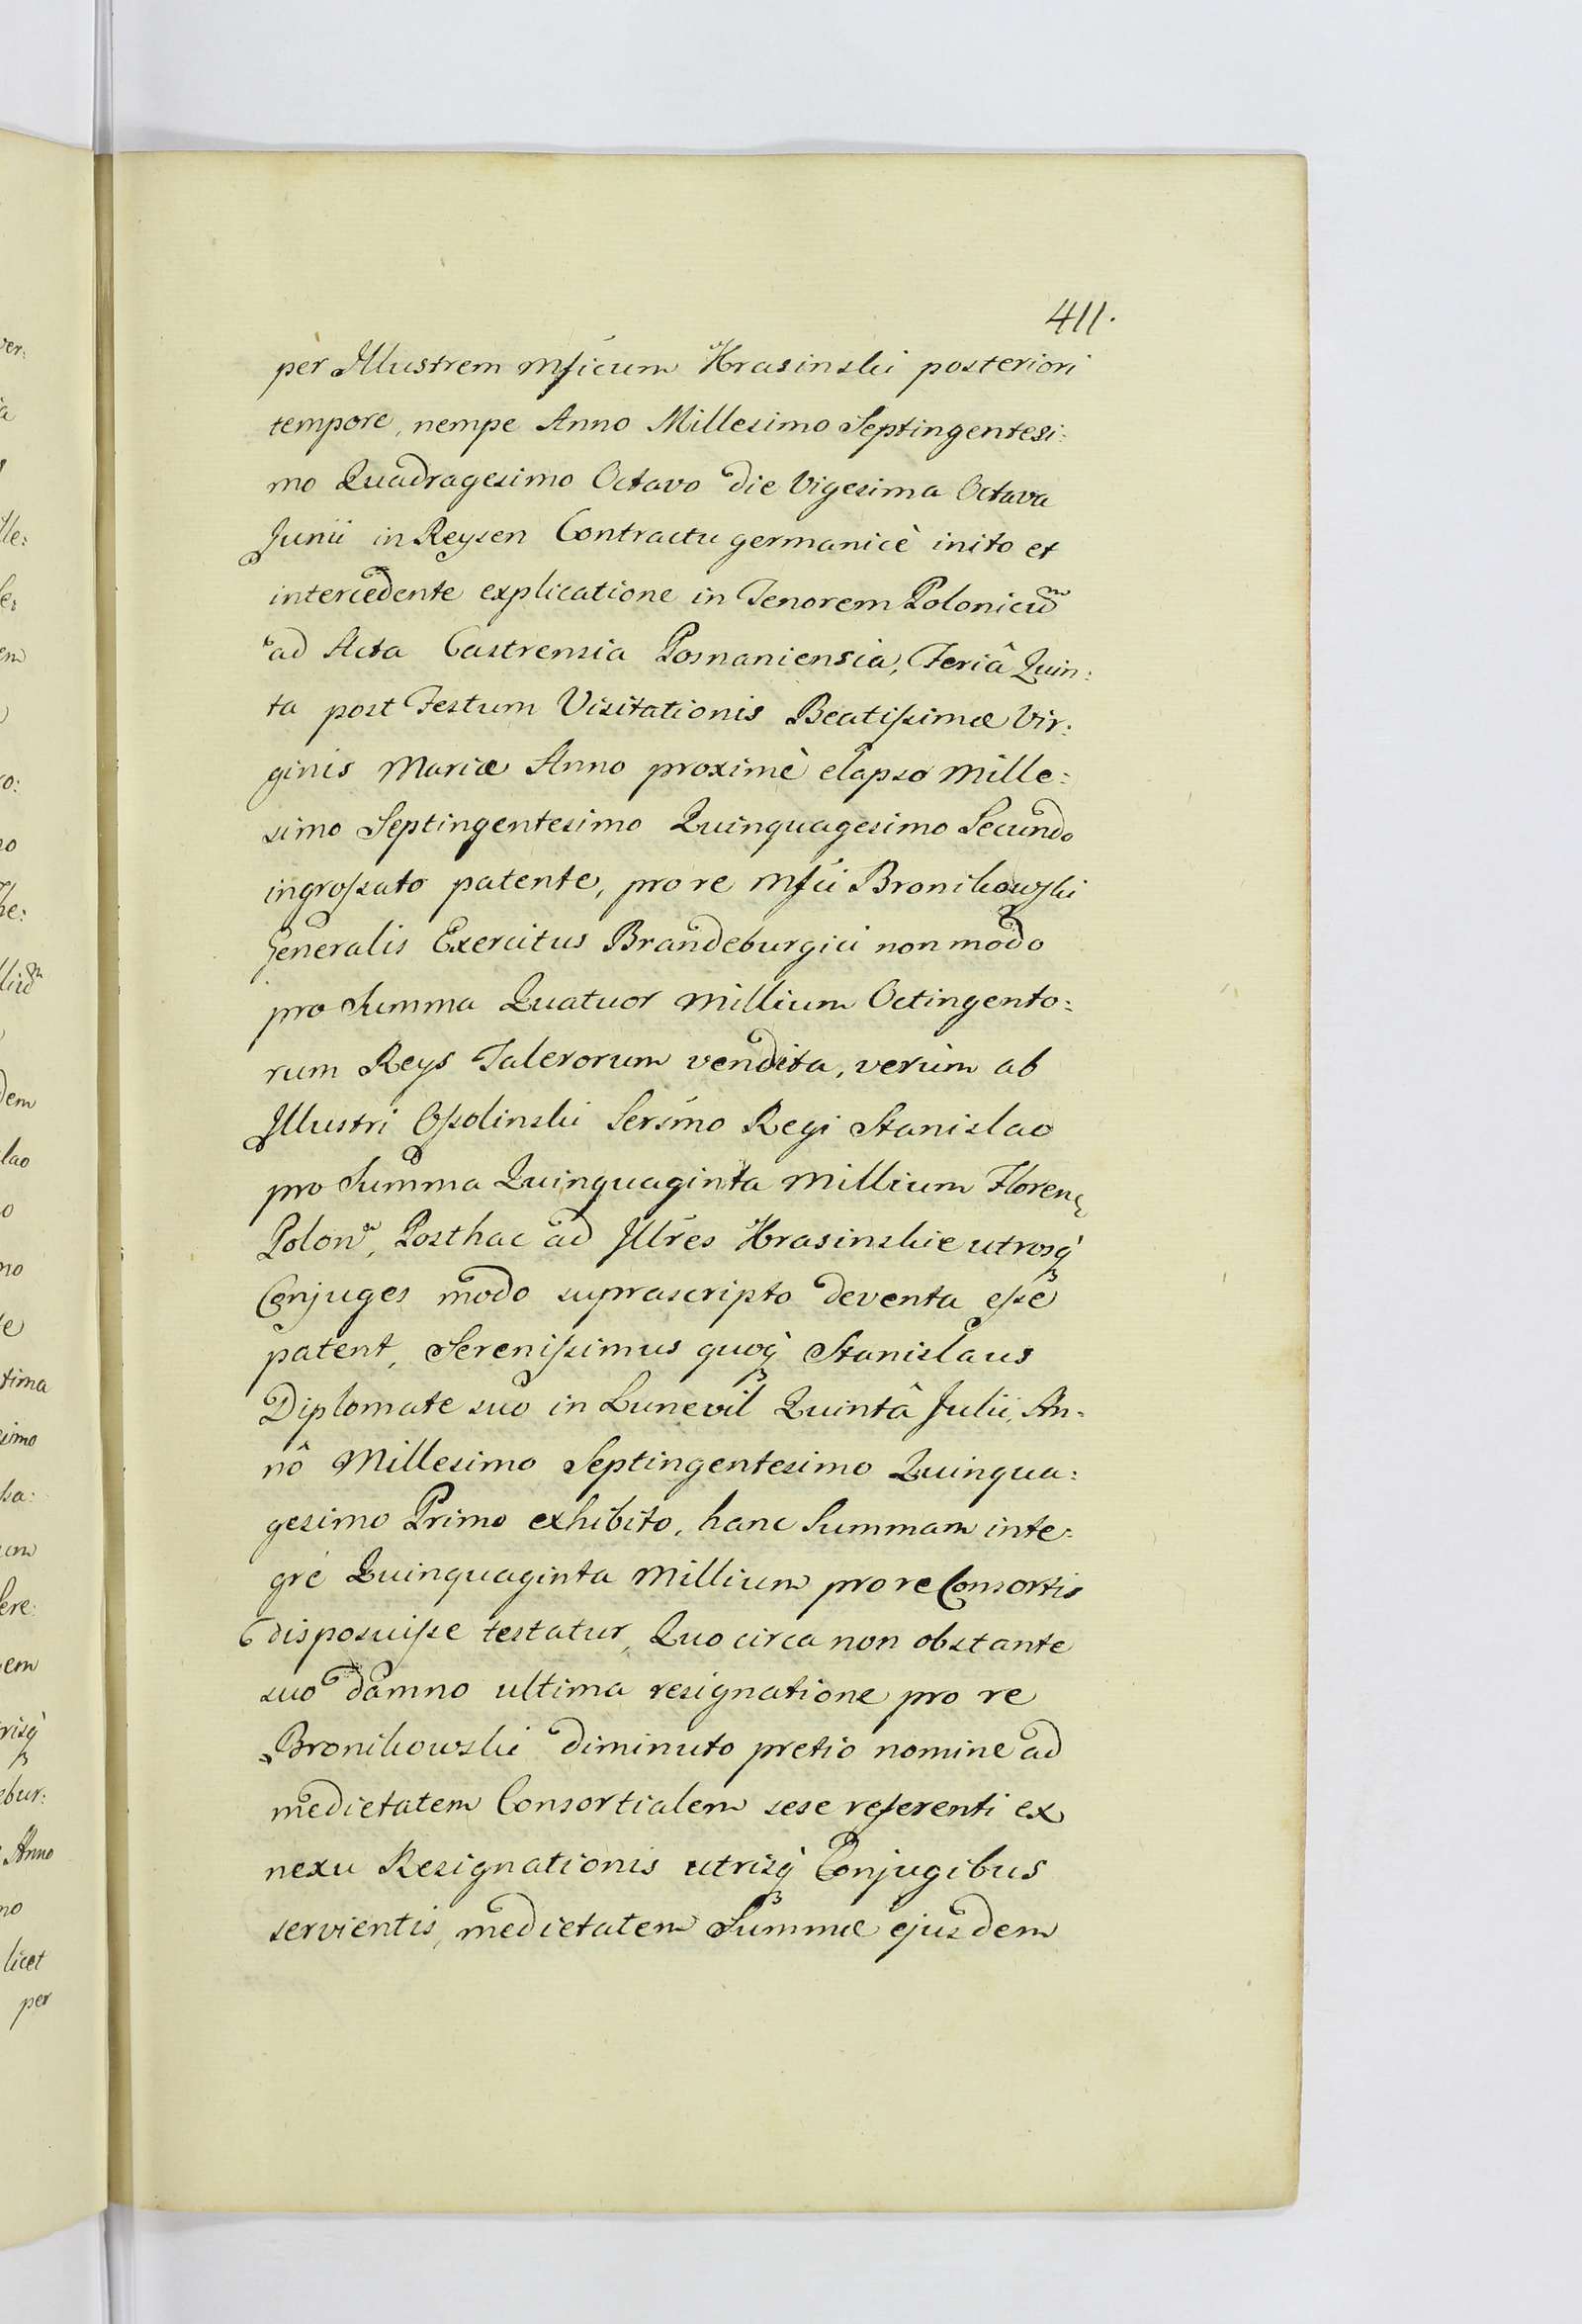 411.
per Illustrem Mficum Krasinski posteriori
tempore, nempe Anno Millesimo Septingentesi:
mo Quadragesimo Octavo die Vigesima Octava
Junii in Reysen Contractu germanicè inito et
intercedente explicatione in Tenorem Polonicum
ad Acta Castrensia Posnaniensia, Feriâ Quin:
ta post Festum Visitationis Beatissimæ Vir:
ginis Mariæ Anno proximè elapso Mille:
simo Septingentesimo Quinquagesimo Secundo
ingrossato patente, pro re Mfci Bronikowski
Generalis Exercitus Brandeburgici non modo
pro Summa Quatuor Millium Octingento:
rum Reys Talerorum vendita, verùm ab
Illustri Ossolinski Sersmo Regi Stanislao
pro Summa Quinquaginta Millium Floren
Polon, Posthac ad Illres Krasinskie utrosq
Conjuges modo suprascripto deventa esse
patent, Serenissimus quoq Stanislaus
Diplomate suo in Lunevil Quintâ Julii, An:
nô Millesimo Septingentesimo Quinqua:
gesimo Primo exhibito, hanc Summam inte:
grè Quinquaginta Millium pro re Consortis
disposuisse testatur, Quo circa non obstante
suo damno ultima resignatione pro re
Bronikowski diminuto pretio nomine ad
medietatem Consortialem sese referenti ex
nexu Resignationis utrisq Conjugibus
servientis, medietatem Summæ ejusdem